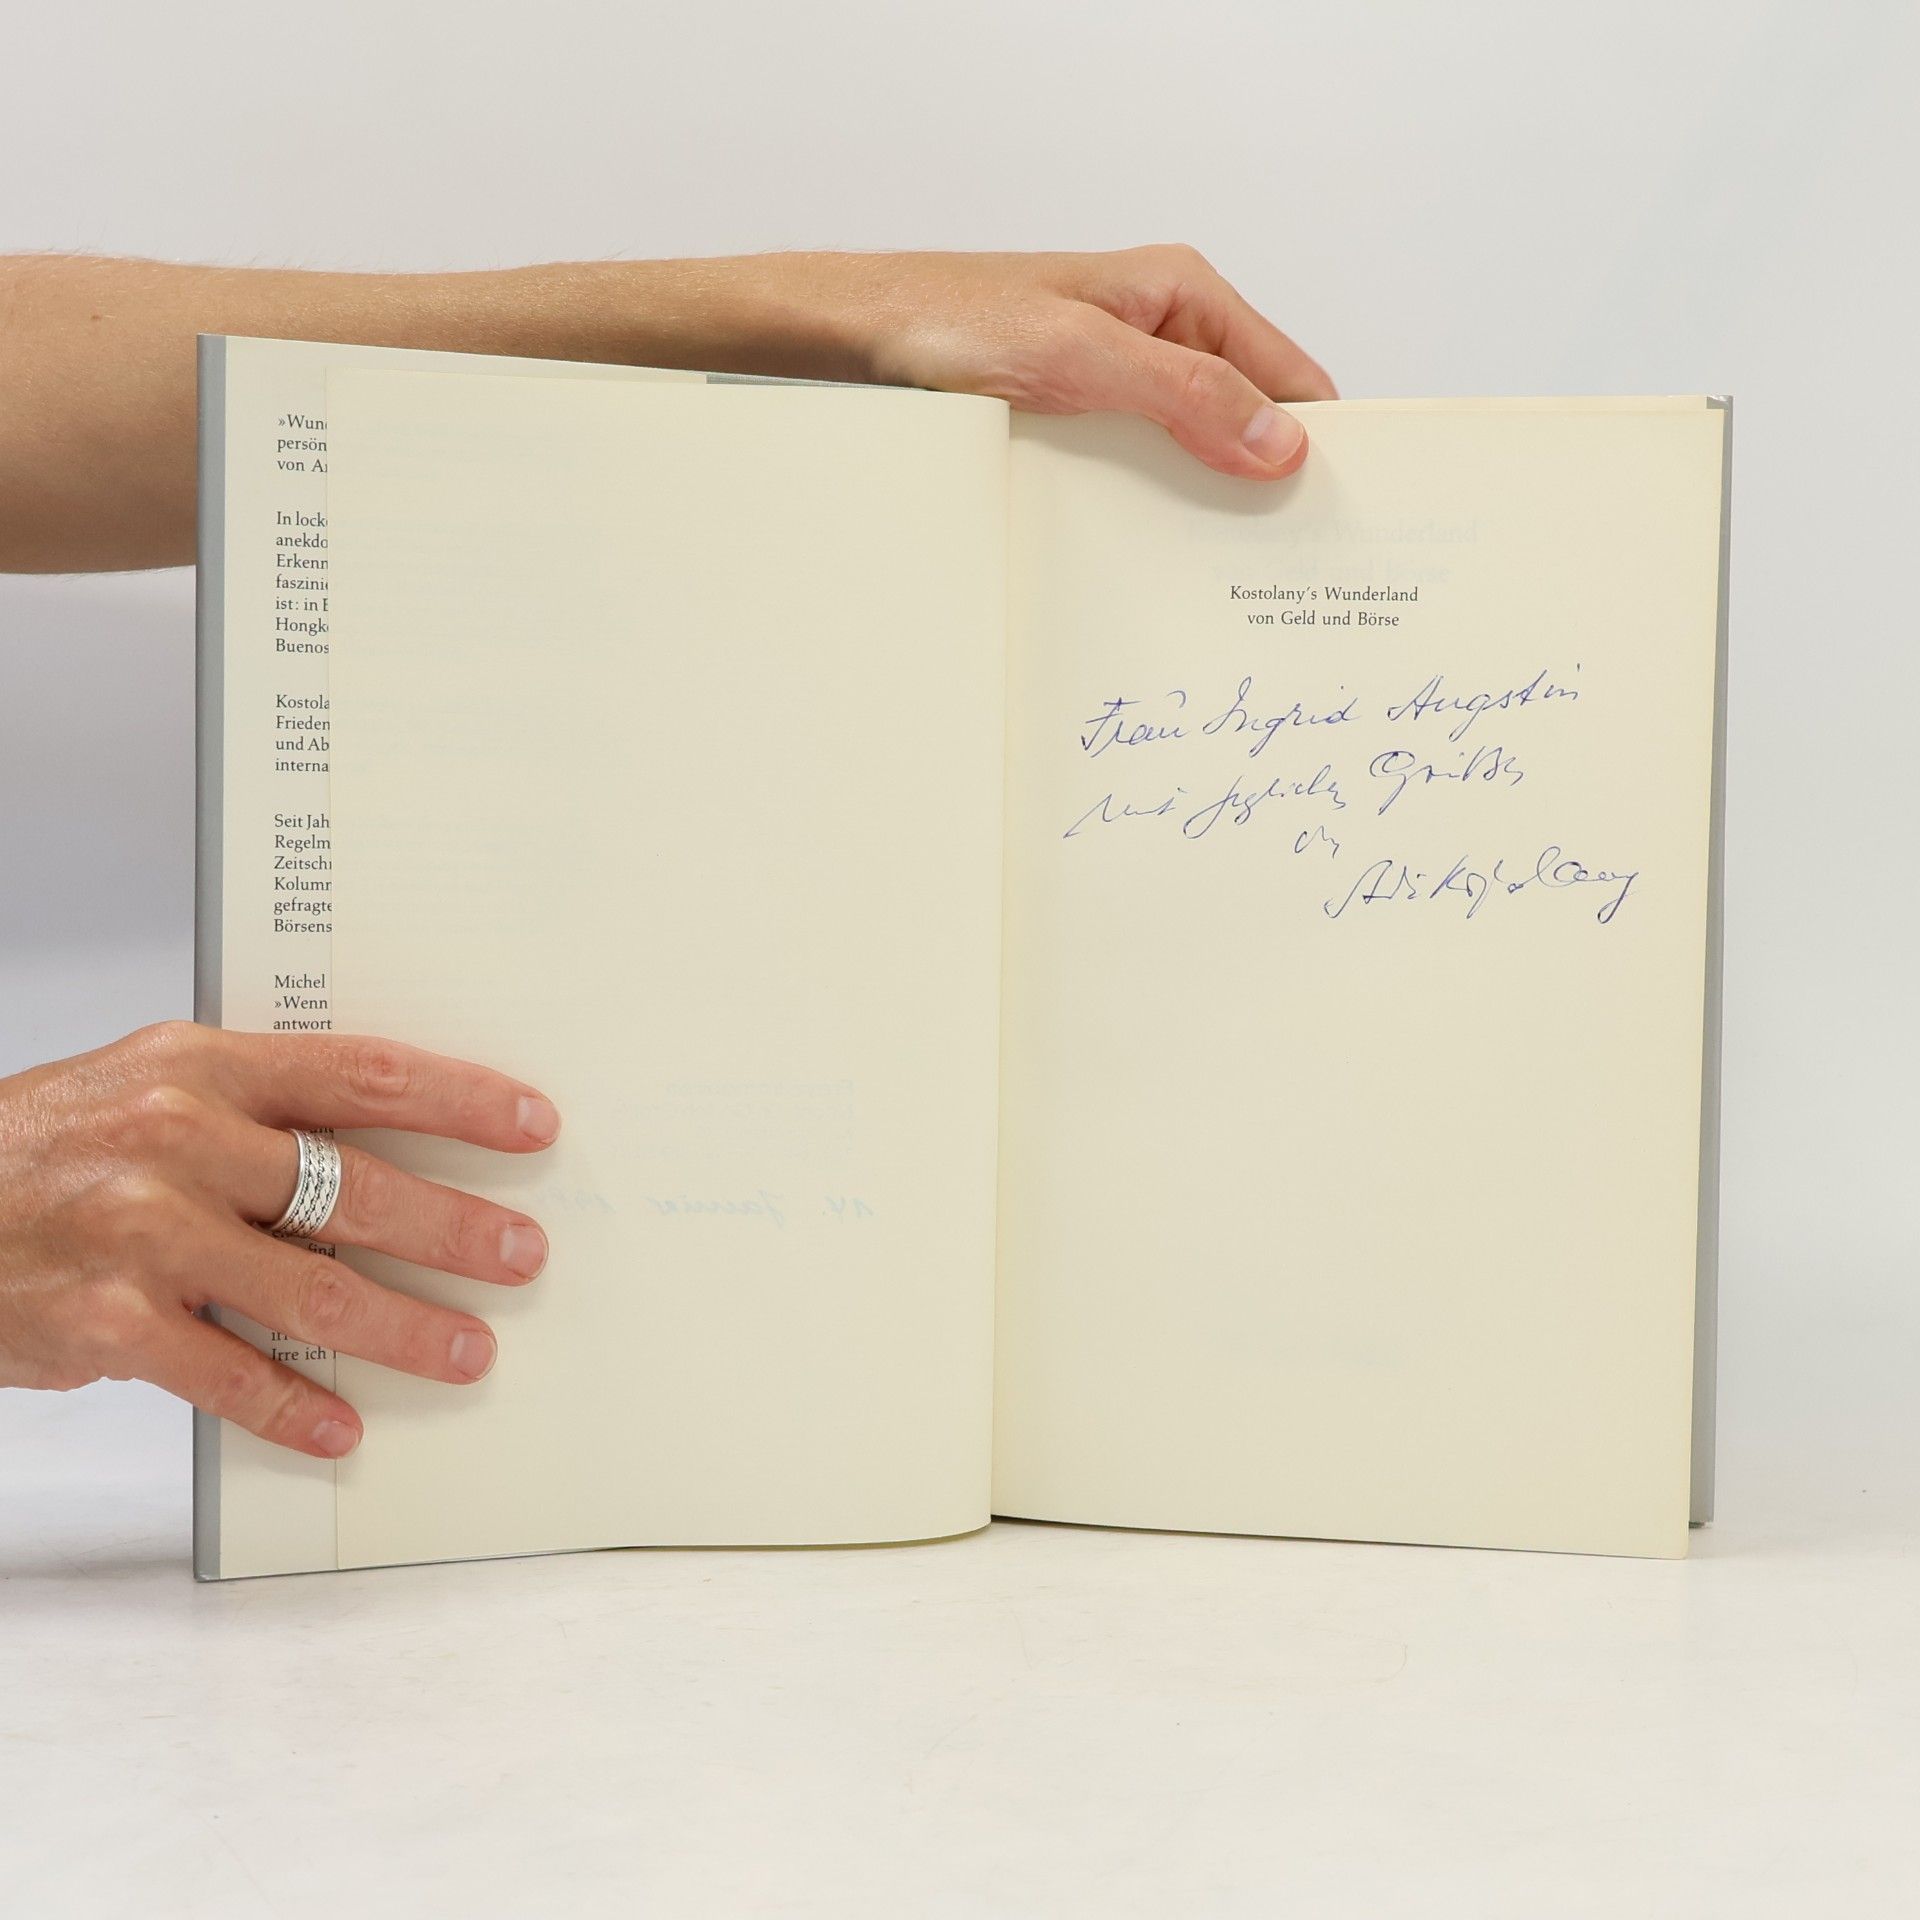 »Wun
persön
von A
In lock
anekdo
Erkenn
faszinie
ist: in
Hongk
Buenos
Kostola
Frieden
und Ab
interna
Seit Jah
Regelm
Zeitsch
Kolum
gefragte
Börsens
Michel
»Wenn
antwort
Irre ich
14. Januar
Kostolany's Wunderland
von Geld und Börse
Frau Ingrid Augstin
mit herzlichen Grüßen
André Kostolany